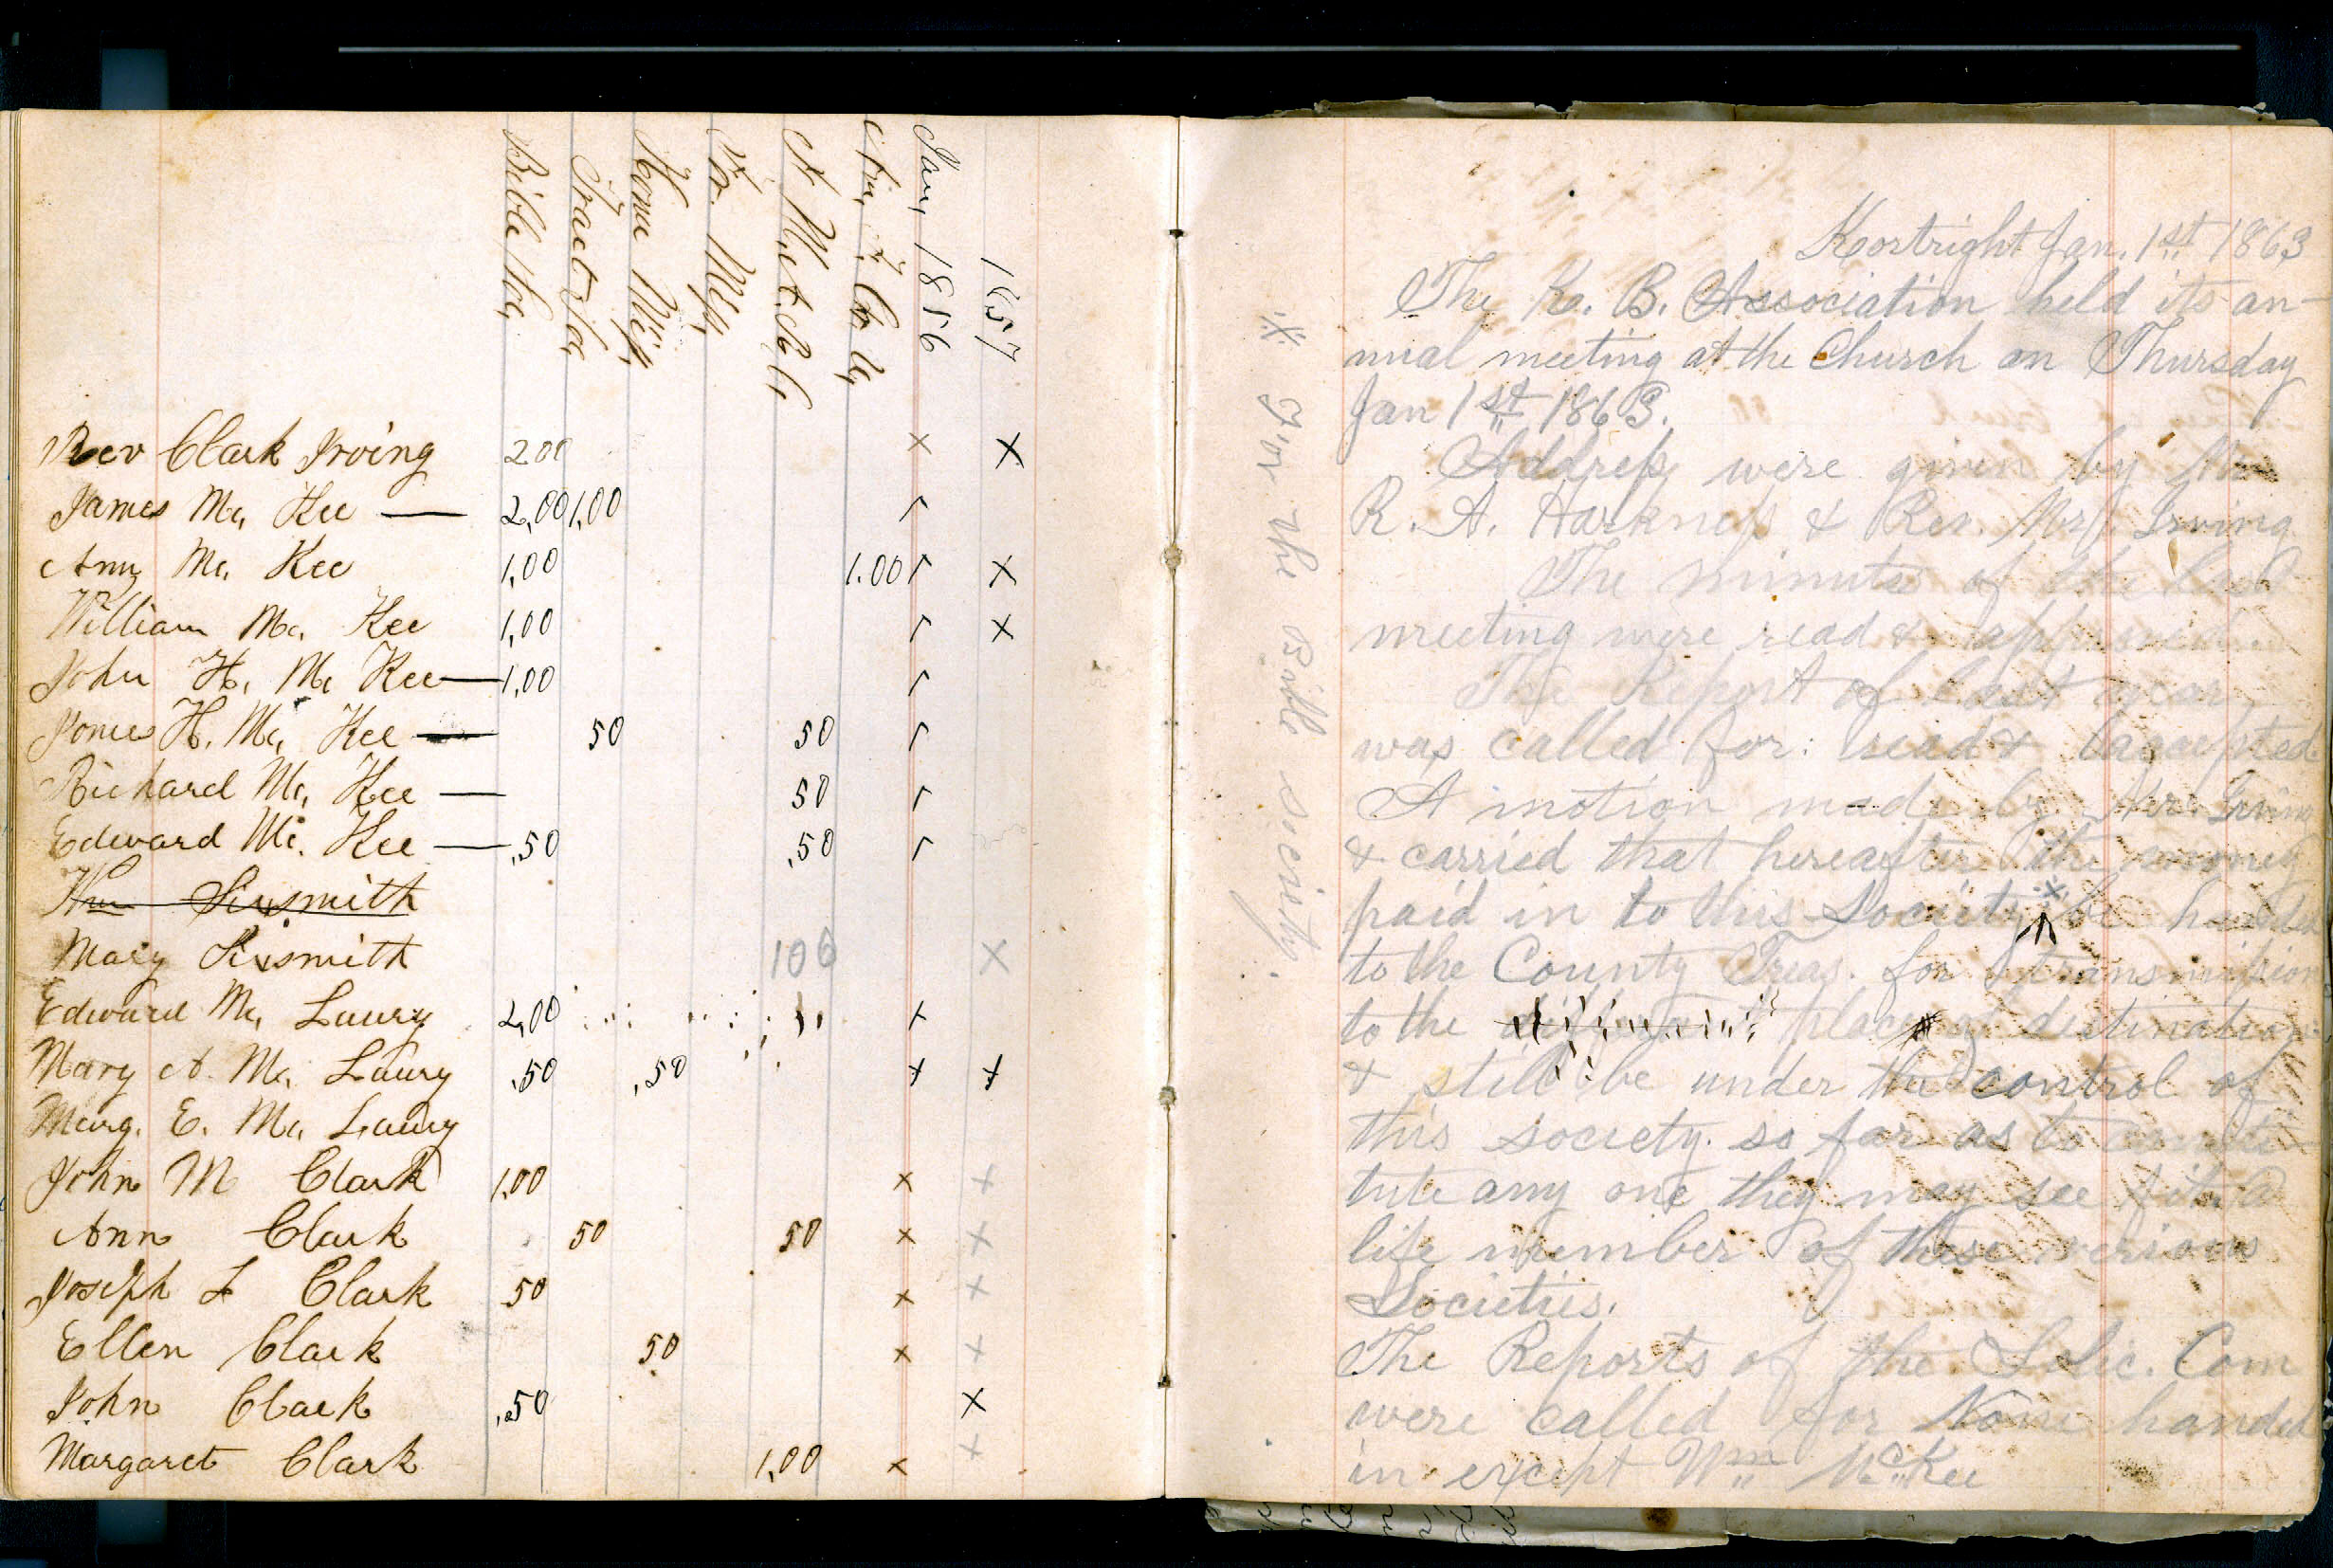 Bible Soc,
Tract Soc,
Home Miss,
Fr. Miss,
Jan, 1856
1857
Rev Clark Irving 200 × ×
James Mc, Kee — 2,00 1,00
Ann Mc. Kee 1,00 1.00 ×
William Mc, Kee 1,00 ×
John H, Mc Kee — 1,00
James H. Mc, Kee — 50 50
Richard Mc, Kee — 50
Edward Mc. Kee — ,50 ,50
Wm Sixsmith
Mary Sixsmith 100 ×
Edward Mc, Laury 2,00 ×
Mary A. Mc. Laury .50 ,50 × ×
Marg. E. Mc, Laury
John M Clark 1,00 × ×
Ann Clark 50 50 × ×
Joseph L Clark 50 × ×
Ellen Clark 50 × ×
John Clark ,50 ×
Margaret Clark 1,00 × ×
Kortright Jan. 1st 1863
The K. B. Association held its an-
nual meeting at the Church on Thursday
Jan 1st 1863.
Address were given by Mr
R. A. Harkness & Rev. Mr Irving
The minutes of the last
meeting were read & approved
The Report of last year,
was called for: read & accepted
A motion made by Irving
& carried that hereafter the money
paid in to this Society ※ be handed
to the County Treas. for transmission
to the different place of destination
& still be under the control of
this society so far as to consti-
tute any one they may see fit a
life member of these various
Societies.
The Reports of the Solic. Com
were called for None handed
in except Wm McKee
※ For the Bible society.